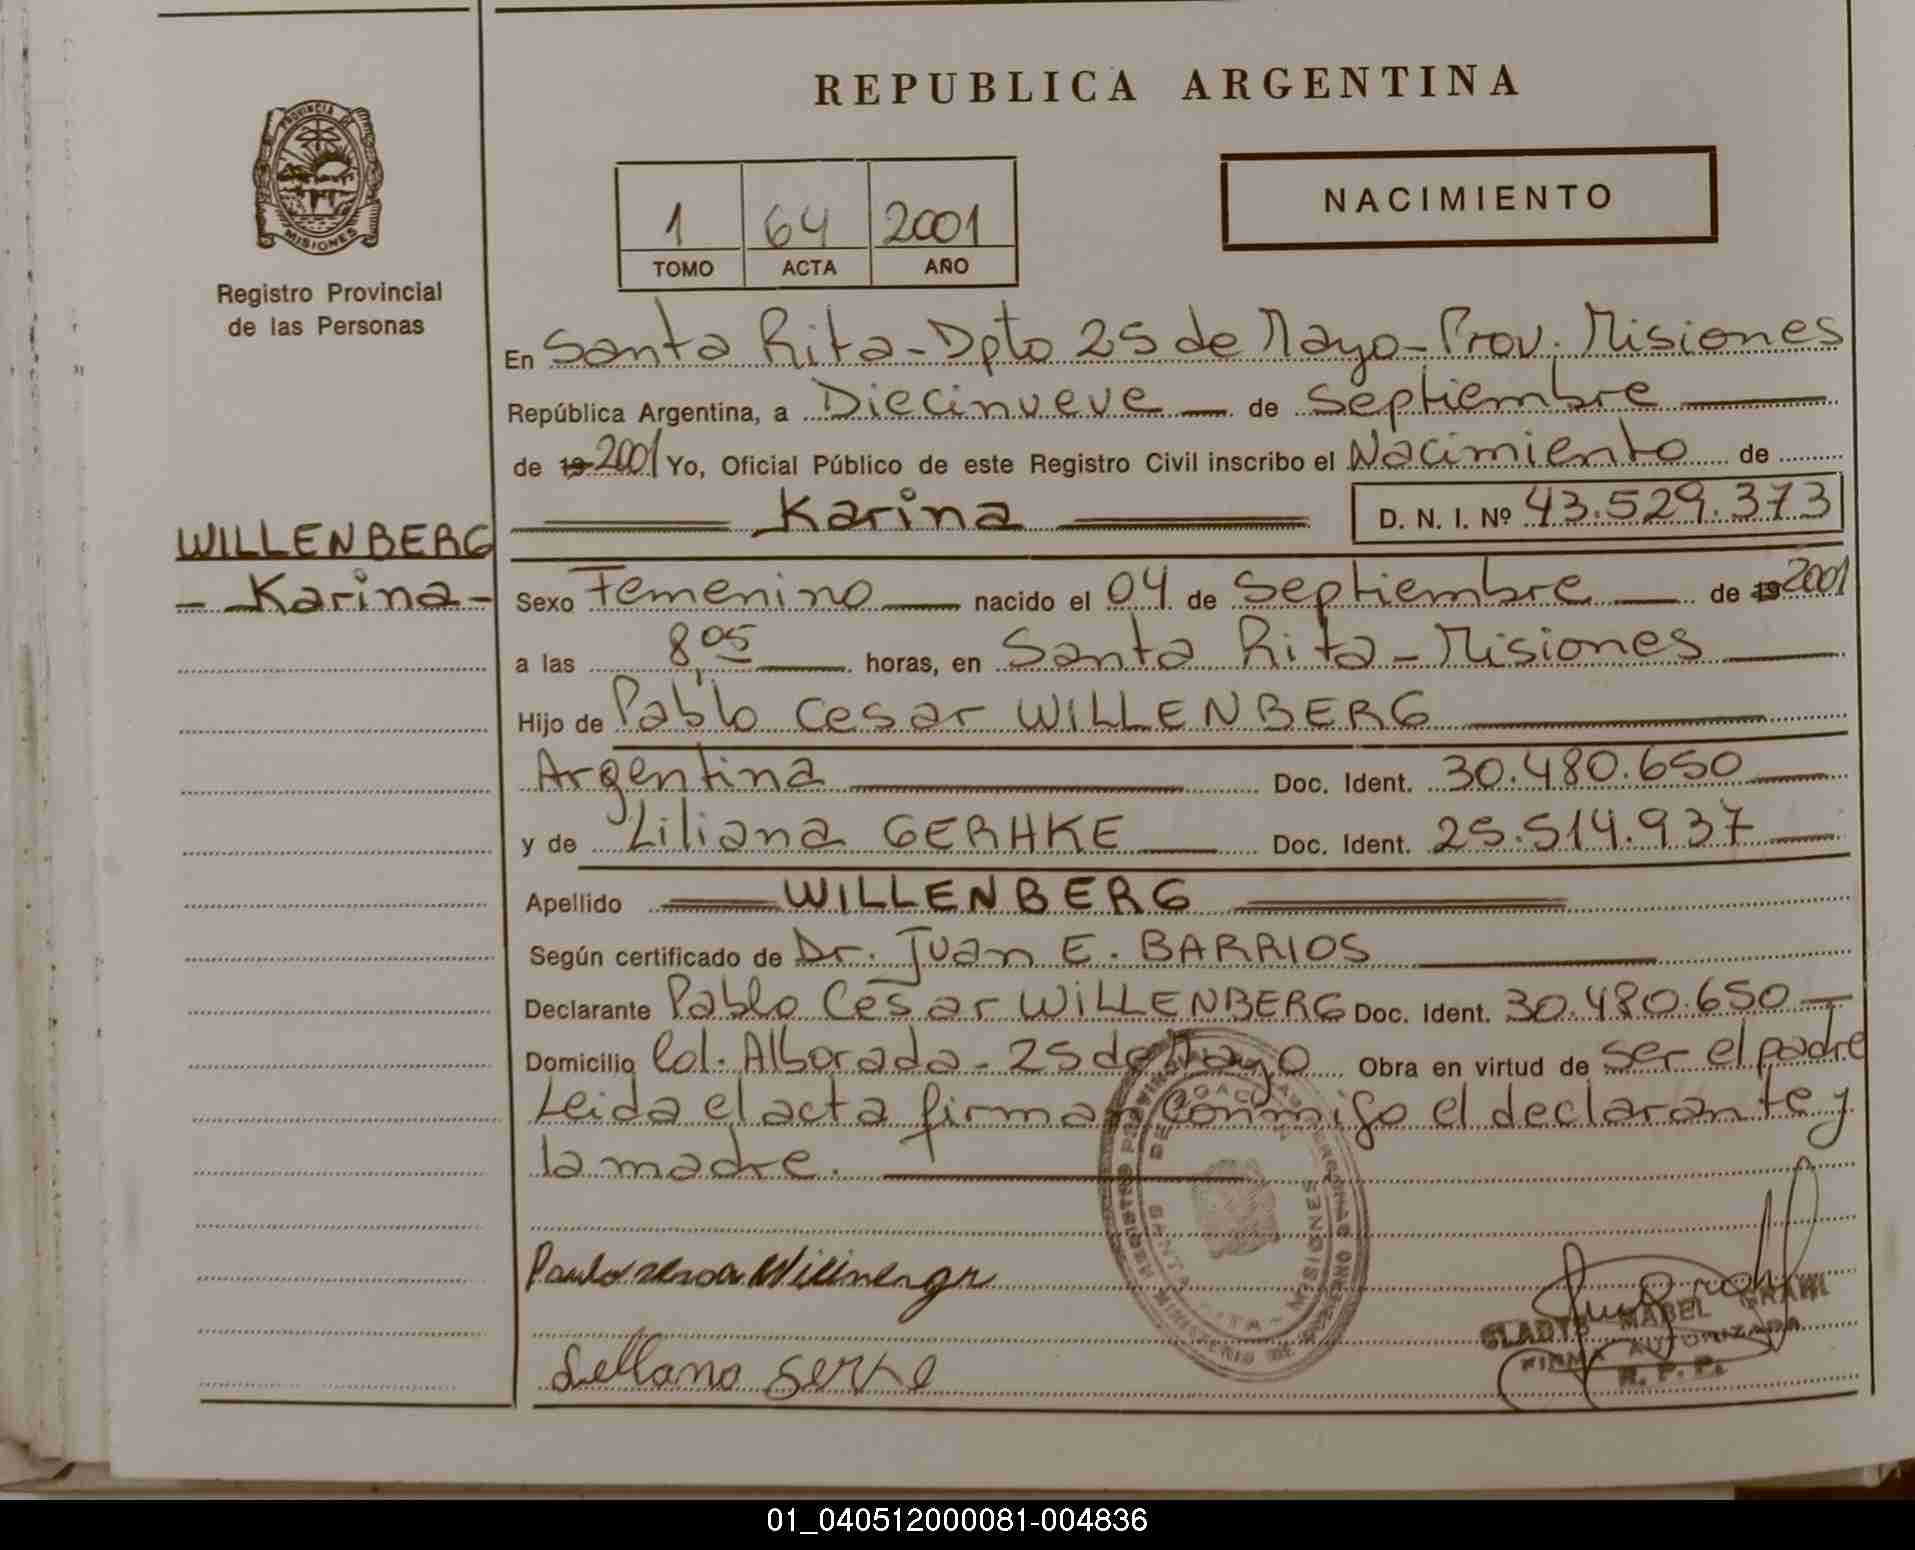 REPUBLICA ARGENTINA
PROVINCIA DE
MISIONES
Registro Provincial
de las Personas
NACIMIENTO
1 64 2001
TOMO ACTA AÑO
En Santa Rita - Dpto 25 de Mayo - Prov. Misiones
República Argentina, a Diecinueve de Septiembre
de 19 2001 Yo, Oficial Público de este Registro Civil inscribo el Nacimiento de
Karina D. N. I. Nº 43.529.373
WILLENBERG
- Karina -
Sexo Femenino nacido el 04 de Septiembre de 19 2001
a las 8,05 horas, en Santa Rita - Misiones
Hijo de Pablo Cesar WILLENBERG
Argentina Doc. Ident. 30.480.650
y de Liliana GERHKE Doc. Ident. 25.514.937
Apellido WILLENBERG
Según certificado de Dr. Juan E. BARRIOS
Declarante Pablo César WILLENBERG Doc. Ident. 30.480.650
Domicilio Col. Alborada - 25 de Mayo Obra en virtud de ser el padre
Leida el acta firman conmigo el declarante y
la madre.
REGISTRO PROVINCIAL DE LAS PERSONAS
MINISTERIO DE GOBIERNO
DELEGACION
SANTA RITA - MISIONES
GLADYS MABEL
FIRMA AUTORIZADA
R. P. P.
01_040512000081-004836